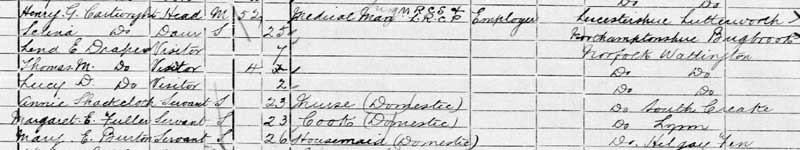 Do Do
Henry G. Cartwright Head M 52 Medical Man M.R.C.S & L.R.C.P Employer Leicestershire Lutterworth
Selina Do Daur S 25 Northamptonshire Bugbrook
Lena E. Draper Visitor 7 Norfolk Wattington
Thomas M. Do Visitor 4 Do Do
Lucy D Do Visitor 2 Do Do
Annie Shackcloth Servant S 23 Nurse (Domestic) Do South Creake
Margaret E. Fuller Servant S 23 Cook (Domestic) Do Lynn
Mary E. Burton Servant S 26 Housemaid (Domestic) Do Hilgay Fen